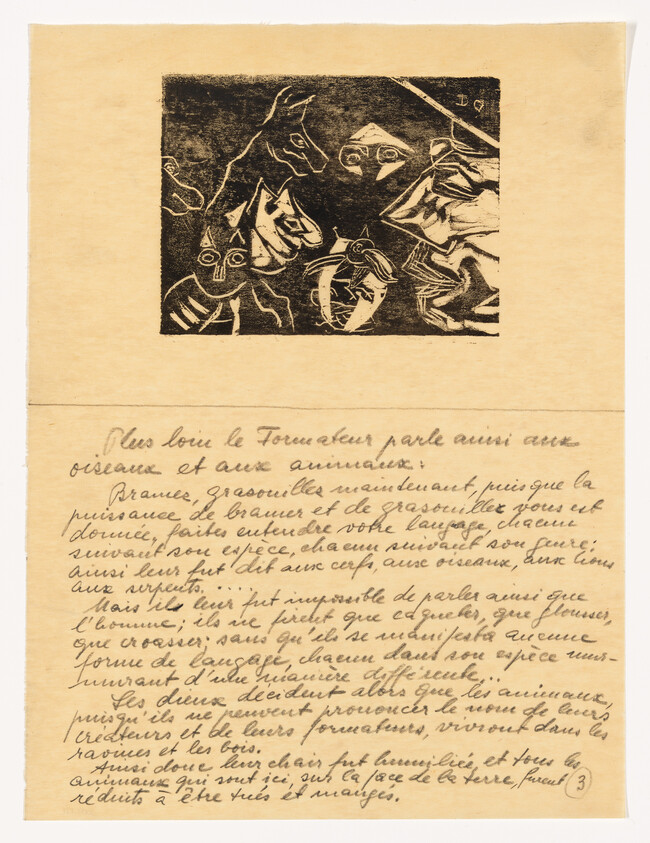 Plus loin le Formateur parle ainsi aux
oiseaux et aux animaux:
Bramez, grasouillez maintenant, puisque la
puissance de bramer et de grasouiller vous est
donnée, faites entendre votre langage, chacun
suivant son espèce, chacun suivant son genre;
ainsi leur fut dit aux cerfs, aux oiseaux, aux lions
aux serpents.....
Mais ils leur fut impossible de parler ainsi que
l'homme; ils ne firent que caqueter, que glousser,
que croasser; sans qu'ils se manifesta aucune
forme de langage, chacun dans son espèce mur-
murant d'une manière différente...
Les dieux décident alors que les animaux,
puisqu'ils ne peuvent prononcer le nom de leurs
créateurs et de leurs formateurs, vivront dans les
ravines et les bois.
Ainsi donc leur chair fut humiliée, et tous les
animaux qui sont ici, sur la face de la terre, furent
réduits à être tués et mangés.
3